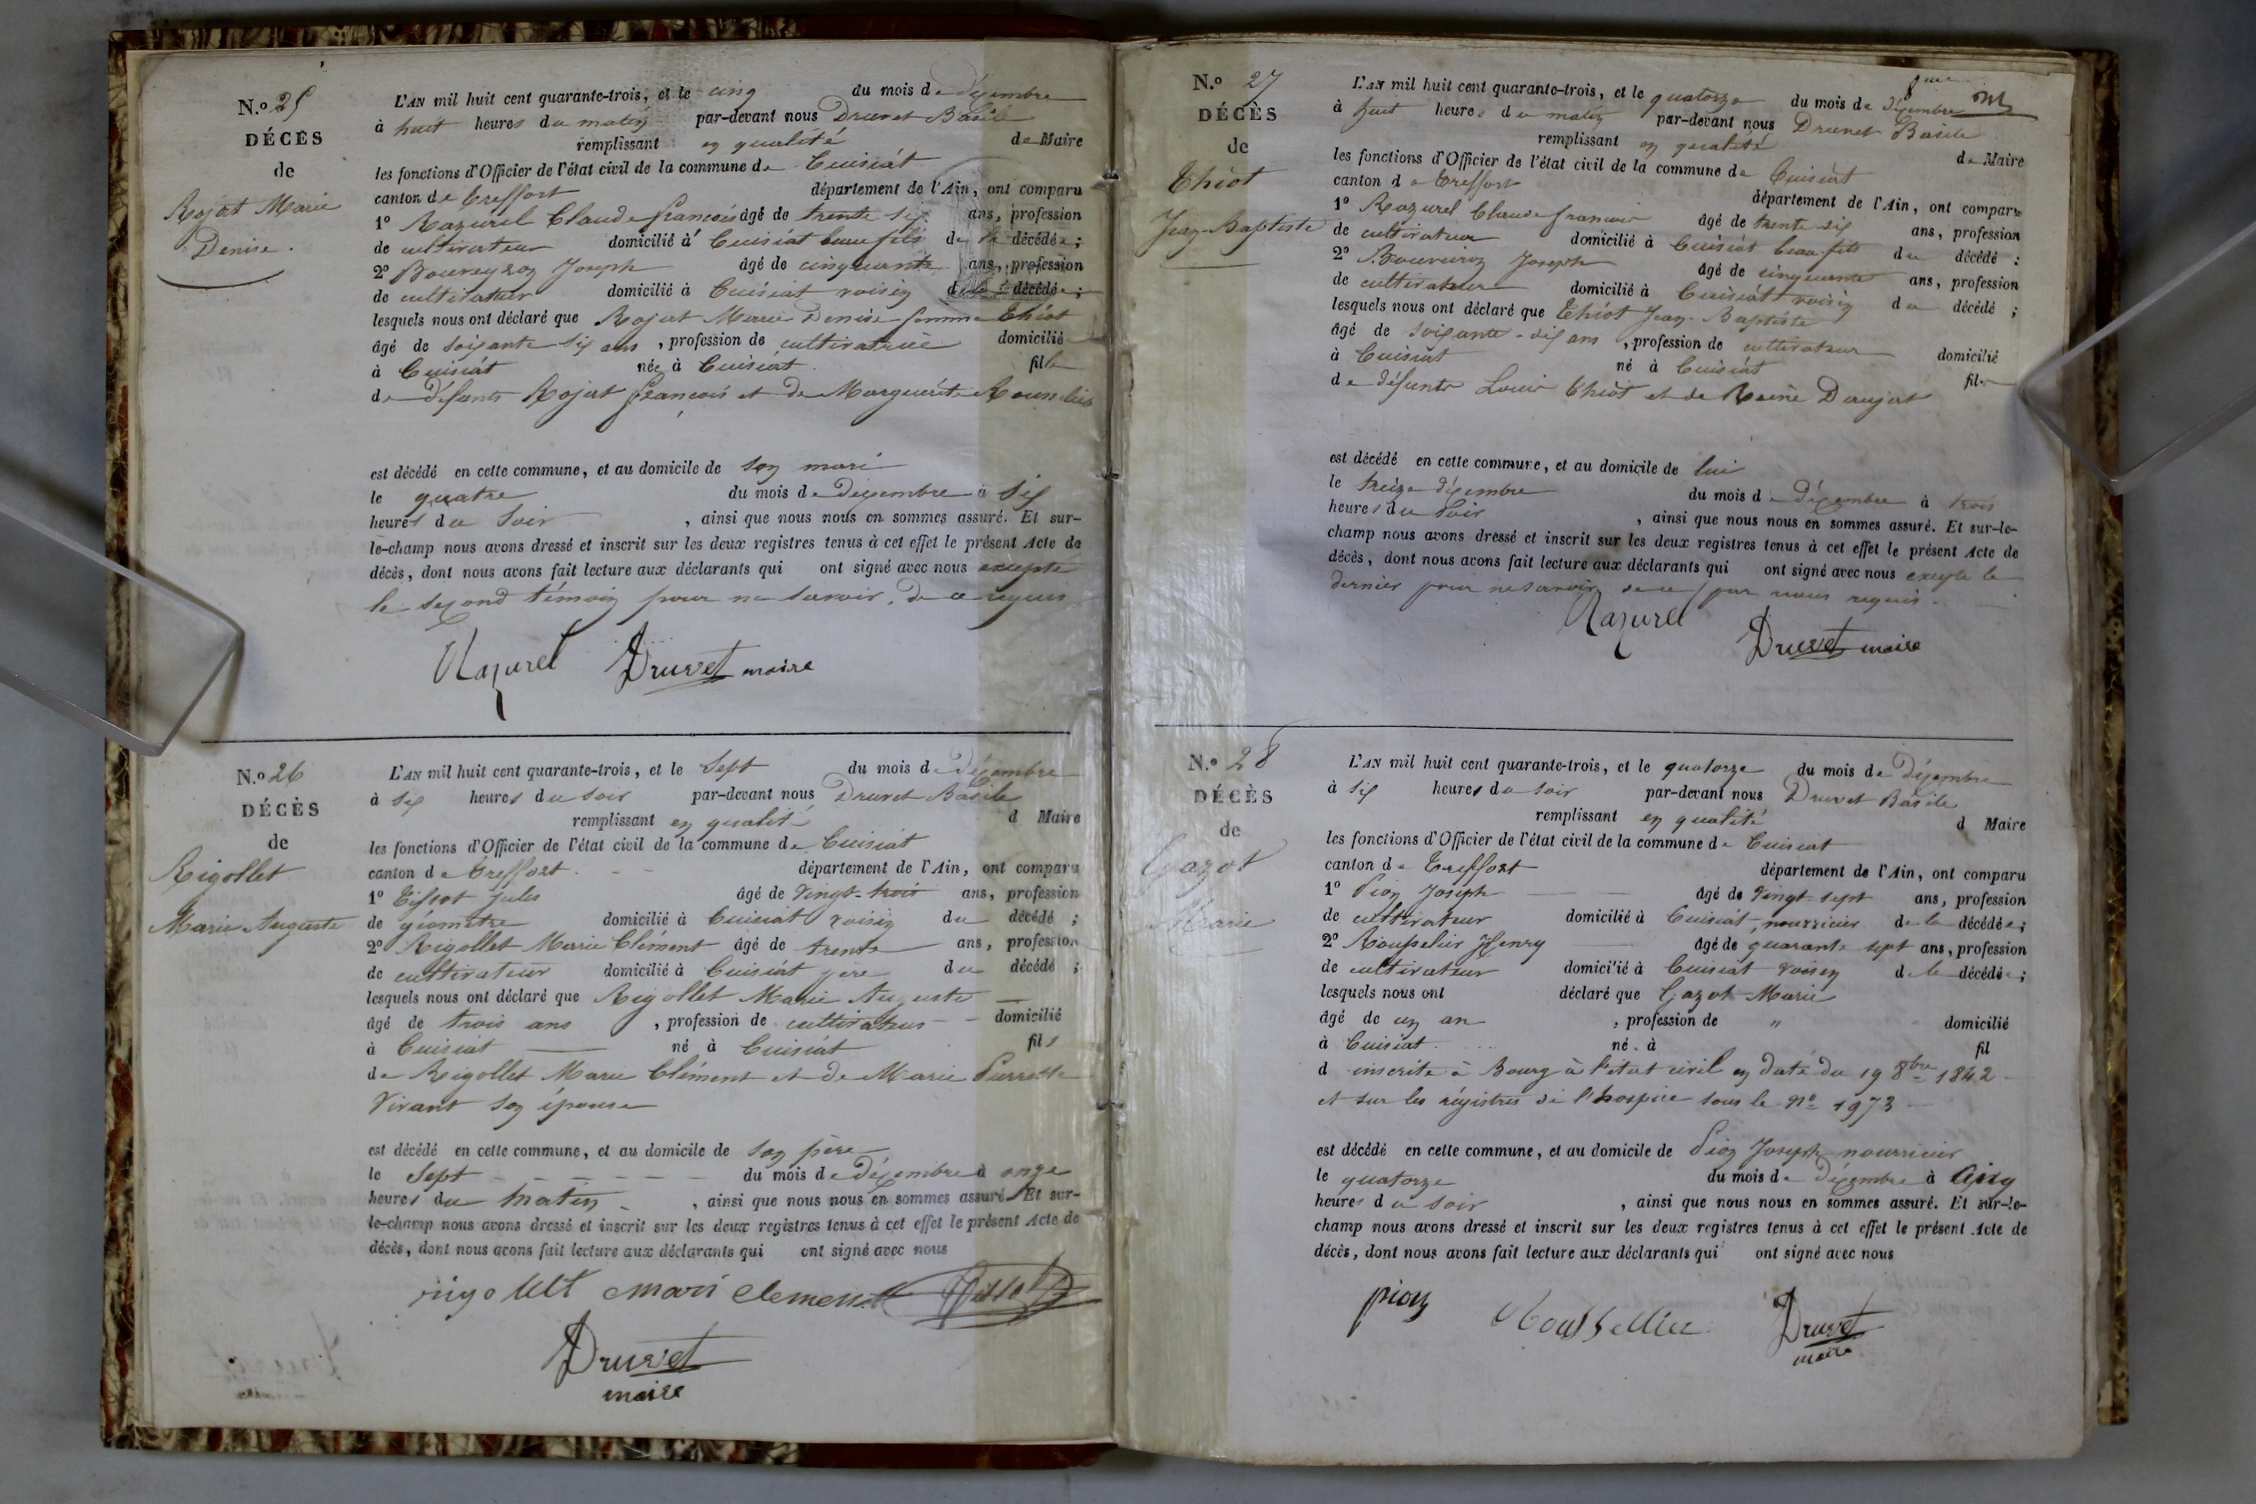 N.o 25
DÉCÈS
de
Rojat Marie
Denise.
L'AN mil huit cent quarante-trois, et le cinq du mois de décembre
à huit heures du matin par-devant nous Druvet Basile
remplissant en qualité de Maire
les fonctions d'Officier de l'état civil de la commune de Cuisiat
canton de Treffort département de l'Ain, ont comparu
1º Razurel Claude françois âgé de trente six ans, profession
de cultivateur domicilié à Cuisiat beau fils de la décédée;
2º Bouveyron Joseph âgé de cinquante ans, profession
de cultivateur domicilié à Cuisiat voisin de la décédée;
lesquels nous ont déclaré que Rojat Marie Denise femme Thiot
âgé de soixante six ans, profession de cultivatrice domicilié
à Cuisiat née à Cuisiat fille
de défunts Rojat françois et de Marguerite
est décédé en cette commune, et au domicile de son mari
le quatre du mois de Décembre à six
heures du soir, ainsi que nous nous en sommes assuré. Et sur-
le-champ nous avons dressé et inscrit sur les deux registres tenus à cet effet le présent Acte de
décès, dont nous avons fait lecture aux déclarants qui ont signé avec nous excepté
le second témoin pour ne savoir, de ce requis
Razurel Druvet maire
N.o 26
DÉCÈS
de
Rigollet
Marie Auguste
L'AN mil huit cent quarante-trois, et le sept du mois de décembre
à six heures du soir par-devant nous Druvet Basile
remplissant en qualité d Maire
les fonctions d'Officier de l'état civil de la commune de Cuisiat
canton de Treffort département de l'Ain, ont comparu
1º Tissot Jules âgé de vingt-trois ans, profession
de géomètre domicilié à Cuisiat voisin du décédé;
2º Rigollet Marie Clément âgé de trente ans, profession
de cultivateur domicilié à Cuisiat père du décédé;
lesquels nous ont déclaré que Rigollet Marie Auguste
âgé de trois ans, profession de cultivateur domicilié
à Cuisiat né à Cuisiat fils
de Rigollet Marie Clément et de Marie Pierrette
Vivant son épouse
est décédé en cette commune, et au domicile de son père
le sept du mois de Décembre à onze
heures du matin, ainsi que nous nous en sommes assuré. Et sur-
le-champ nous avons dressé et inscrit sur les deux registres tenus à cet effet le présent Acte de
décès, dont nous avons fait lecture aux déclarants qui ont signé avec nous
rigollet mari clement Tissot
Druvet
maire
N.o 27
DÉCÈS
de
Thiot
Jean-Baptiste
L'AN mil huit cent quarante-trois, et le quatorze du mois de décembre
à huit heures du matin par-devant nous Druvet Basile
remplissant en qualité de Maire
les fonctions d'Officier de l'état civil de la commune de Cuisiat
canton de Treffort département de l'Ain, ont comparu
1º Razurel Claude françois âgé de trente six ans, profession
de cultivateur domicilié à Cuisiat beau-fils du décédé;
2º Bouveron Joseph âgé de cinquante ans, profession
de cultivateur domicilié à Cuisiat voisin du décédé;
lesquels nous ont déclaré que Thiot Jean-Baptiste
âgé de soixante-six ans, profession de cultivateur domicilié
à Cuisiat né à Cuisiat fils
de défunts Louis Thiot et de Reine Daujat
est décédé en cette commune, et au domicile de lui
le treize décembre du mois de Décembre à trois
heures du soir, ainsi que nous nous en sommes assuré. Et sur-le-
champ nous avons dressé et inscrit sur les deux registres tenus à cet effet le présent Acte de
décès, dont nous avons fait lecture aux déclarants qui ont signé avec nous excepté le
dernier pour ne savoir de ce par nous requis.
Razurel Druvet maire
N.o 28
DÉCÈS
de
Gazot
Marie
L'AN mil huit cent quarante-trois, et le quatorze du mois de Décembre
à six heures du soir par-devant nous Druvet Basile
remplissant en qualité d Maire
les fonctions d'Officier de l'état civil de la commune de Cuisiat
canton de Treffort département de l'Ain, ont comparu
1º Pion Joseph âgé de vingt-sept ans, profession
de cultivateur domicilié à Cuisiat, nourricier de la décédée;
2º Rousselier Henry âgé de quarante sept ans, profession
de cultivateur domicilié à Cuisiat voisin de la décédée;
lesquels nous ont déclaré que Gazot Marie
âgé de un an, profession de " domicilié
à Cuisiat né à fil
d inscrite à Bourg à l'état civil en date du 19 8bre 1842
et sur les régistres de l'hospice sous le no 1973
est décédé en cette commune, et au domicile de Pion Joseph nourricier
le quatorze du mois de Décembre à cinq
heures du soir, ainsi que nous nous en sommes assuré. Et sur-le-
champ nous avons dressé et inscrit sur les deux registres tenus à cet effet le présent Acte de
décès, dont nous avons fait lecture aux déclarants qui ont signé avec nous
pion Roussellier Druvet
maire